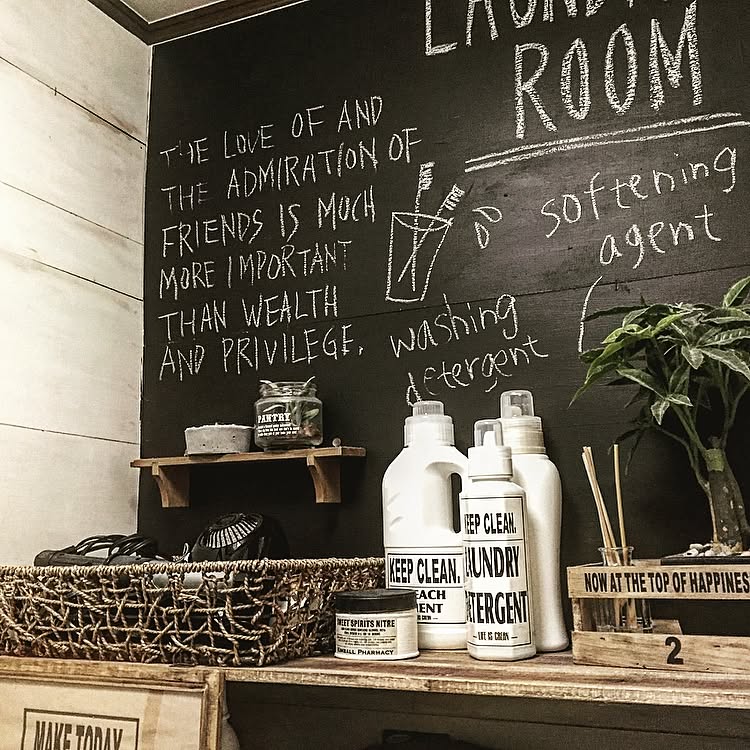 ROOM
THE LOVE OF AND
THE ADMIRATION OF
FRIENDS IS MUCH
MORE IMPORTANT
THAN WEALTH
AND PRIVILEGE.
softening
agent
washing
detergent
PANTRY
KEEP CLEAN.
KEEP CLEAN.
LAUNDRY
DETERGENT
LIFE IS
SWEET SPIRITS NITRE
KIMBALL PHARMACY
NOW AT THE TOP OF HAPPINES
2
MAKE TODAY